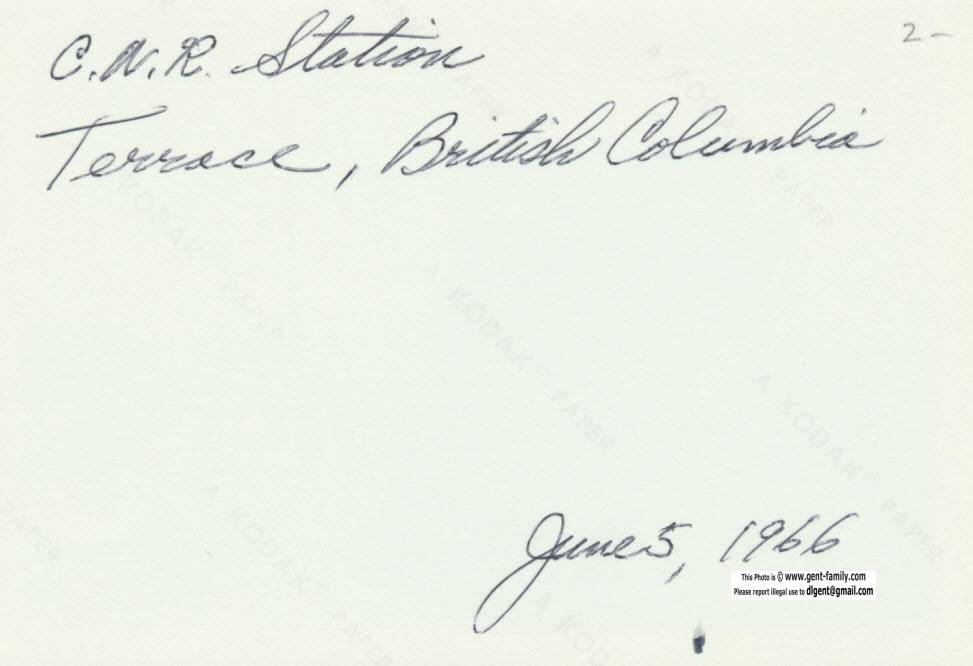 2-
C.N.R. Station
Terrace, British Columbia
A KODAK® PAPER
A KODAK® PAPER
A KODAK® PAPER
A KODAK® PAPER
A KODAK® PAPER
June 5, 1966
This Photo is © www.gent-family.com
Please report illegal use to dlgent@gmail.com